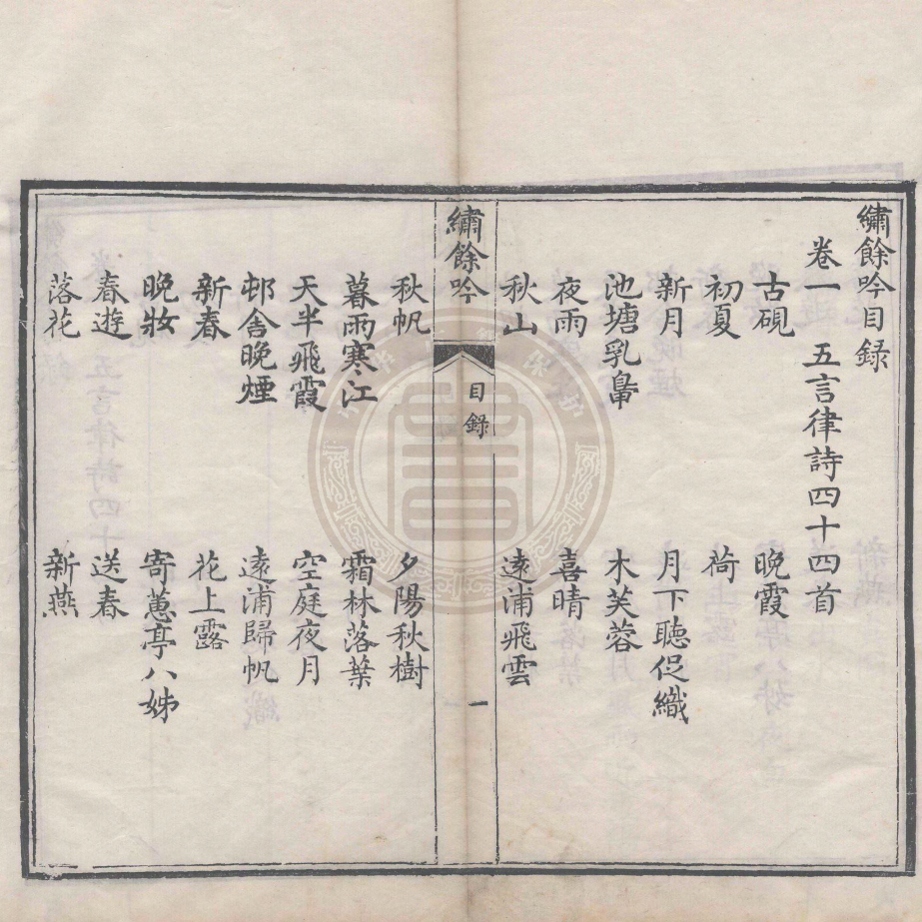 繡餘吟目録
卷一 五言律詩四十四首
古硯 晚霞
初夏 荷上露
新月 月下聽促織
池塘乳鳧 木芙蓉
夜雨 喜晴
秋山 遠浦飛雲
繡餘吟 目録 一
秋帆 夕陽秋樹
暮雨寒江 霜林落葉
天半飛霞 空庭夜月
邨舍晚煙 遠浦歸帆
新春 花上露
晚妝 寄蕙亭八姊
春遊 送春
落花 新燕